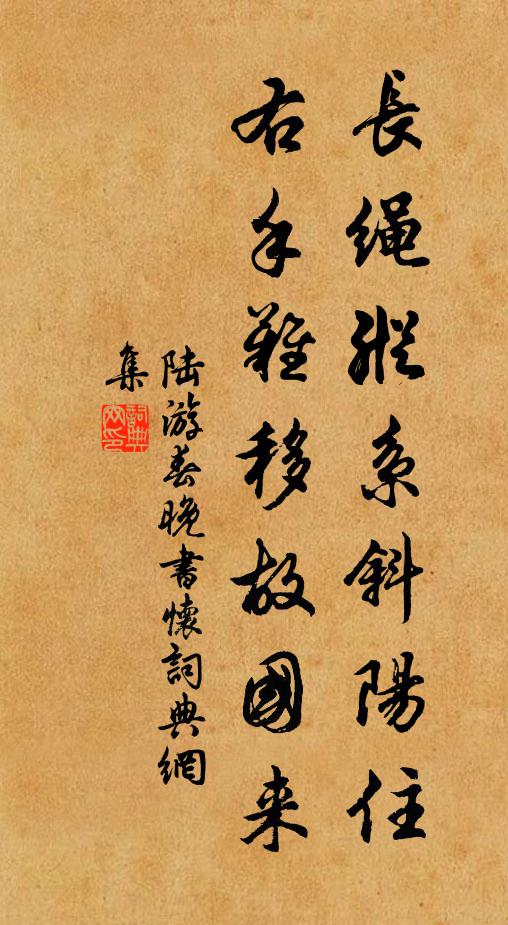 長繩縱系斜陽住
右手難移故國来
陸游春晚書懷詞典網
集
詞典網印